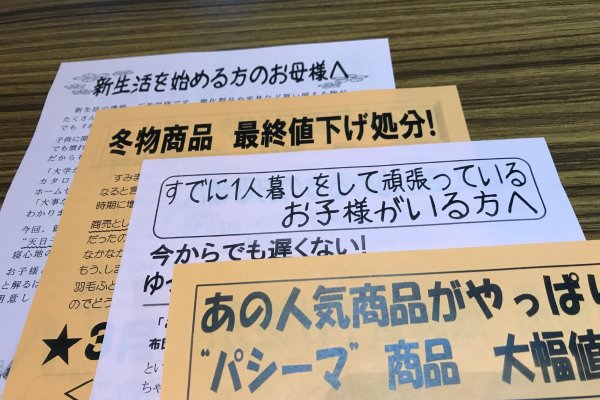 新生活を始める方のお母様へ
たくさん
でも「そ
子供に関
でも慣れ
だから
「大学
カタロ
ホームセ
「大事な
わかりま
今回、新
"天日干
寝心地の
お子様の
と解るは
用意し
冬物商品 最終値下げ処分!
すみま
なると言
時期に増
商売とし
だったの
なかなか
もう、しま
羽毛ふと
のでどう
★3
すでに1人暮しをして頑張っている
お子様がいる方へ
今からでも遅くない!
ゆっ
布団
とい
ちゃ
あの人気商品がやっぱい
"パシーマ"商品 大幅値